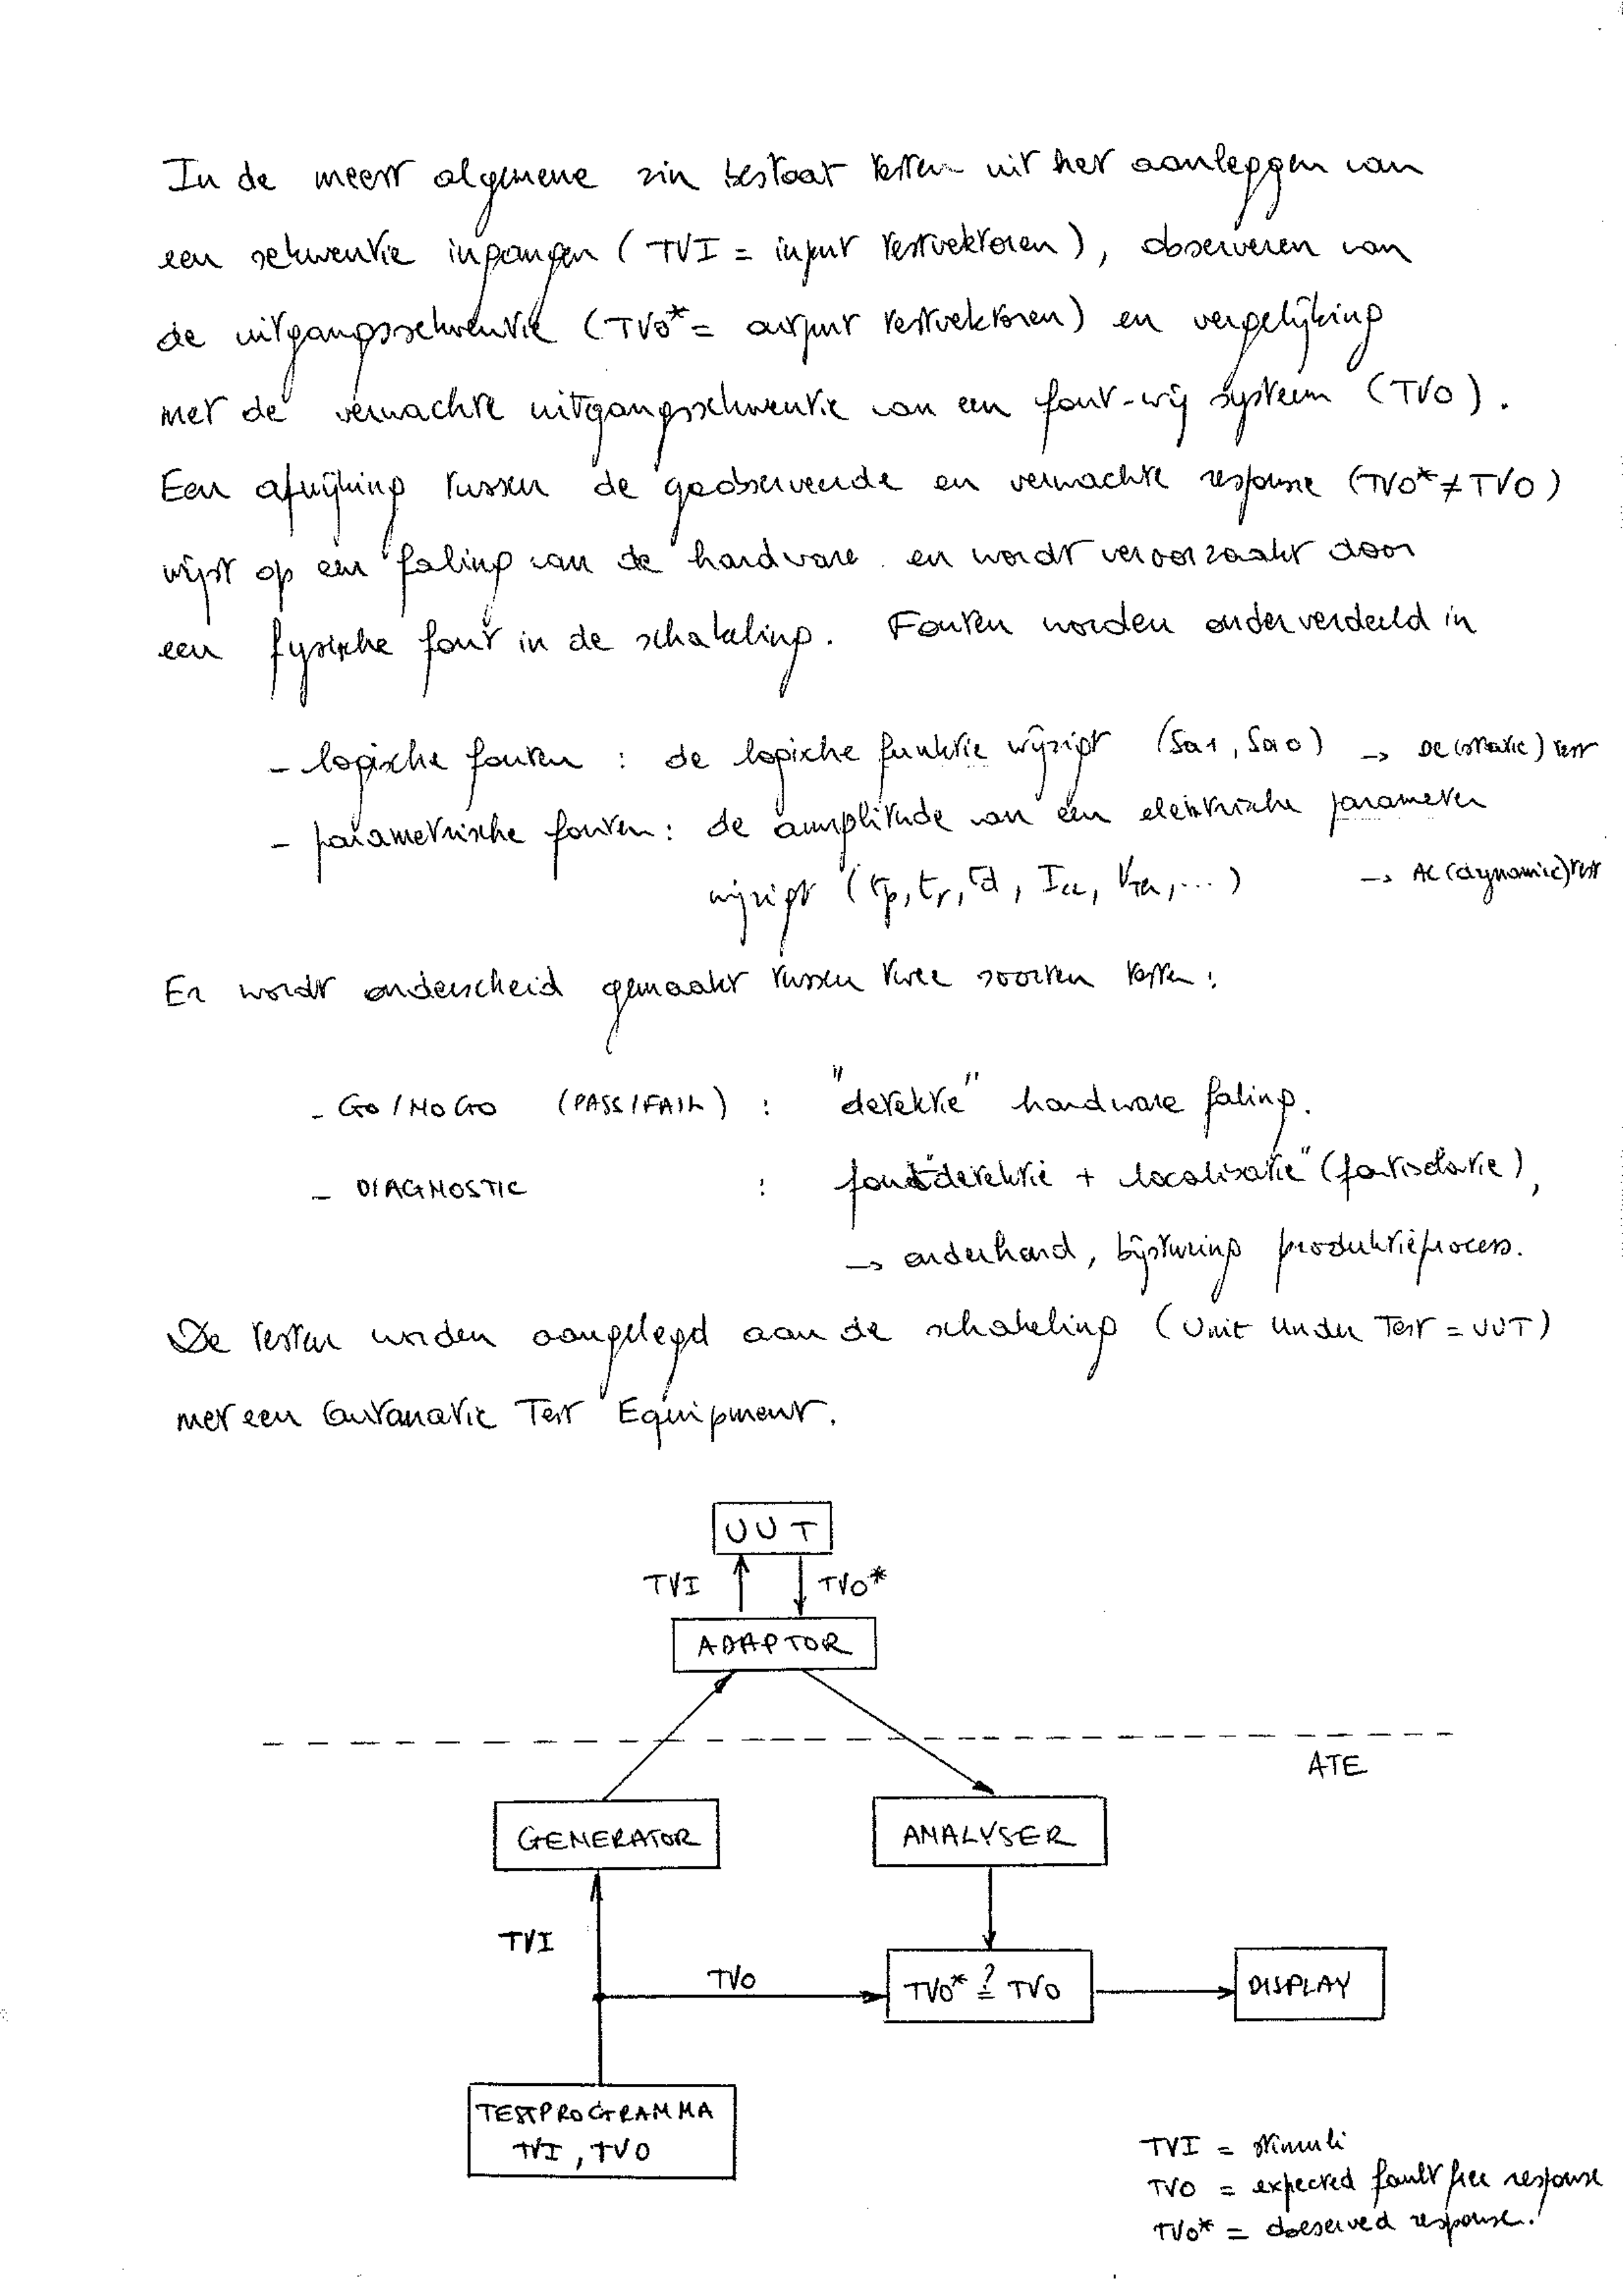 In de meest algemene zin bestaat testen uit het aanleggen van
een sekwentie ingangen (TVI = input testvektoren), observeren van
de uitgangssekwentie (TVO* = output testvektoren) en vergelijking
met de verwachte uitgangssekwentie van een fout-vrij systeem (TVO).
Een afwijking tussen de geobserveerde en verwachte response (TVO* ≠ TVO)
wijst op een faling van de hardware en wordt veroorzaakt door
een fysische fout in de schakeling. Fouten worden onderverdeeld in
- logische fouten : de logische funktie wijzigt (Sa1, Sa0) → DC (static) test
- parametrische fouten : de amplitude van een elektrische parameter
wijzigt (tp, tr, td, Icc, VTH, ...) → AC (dynamic) test
Er wordt onderscheid gemaakt tussen twee soorten testen :
- GO/NOGO (PASS/FAIL) : "detektie" hardware faling.
- DIAGNOSTIC : fout"detektie + localisatie" (foutisolatie),
→ onderhoud, bijsturing produktieproces.
De testen worden aangelegd aan de schakeling (Unit Under Test = UUT)
met een Automatic Test Equipment.
UUT
TVI TVO*
ADAPTOR
ATE
GENERATOR ANALYSER
TVI
TVO TVO* ≟ TVO DISPLAY
TESTPROGRAMMA
TVI, TVO
TVI = stimuli
TVO = expected fault free response
TVO* = observed response.